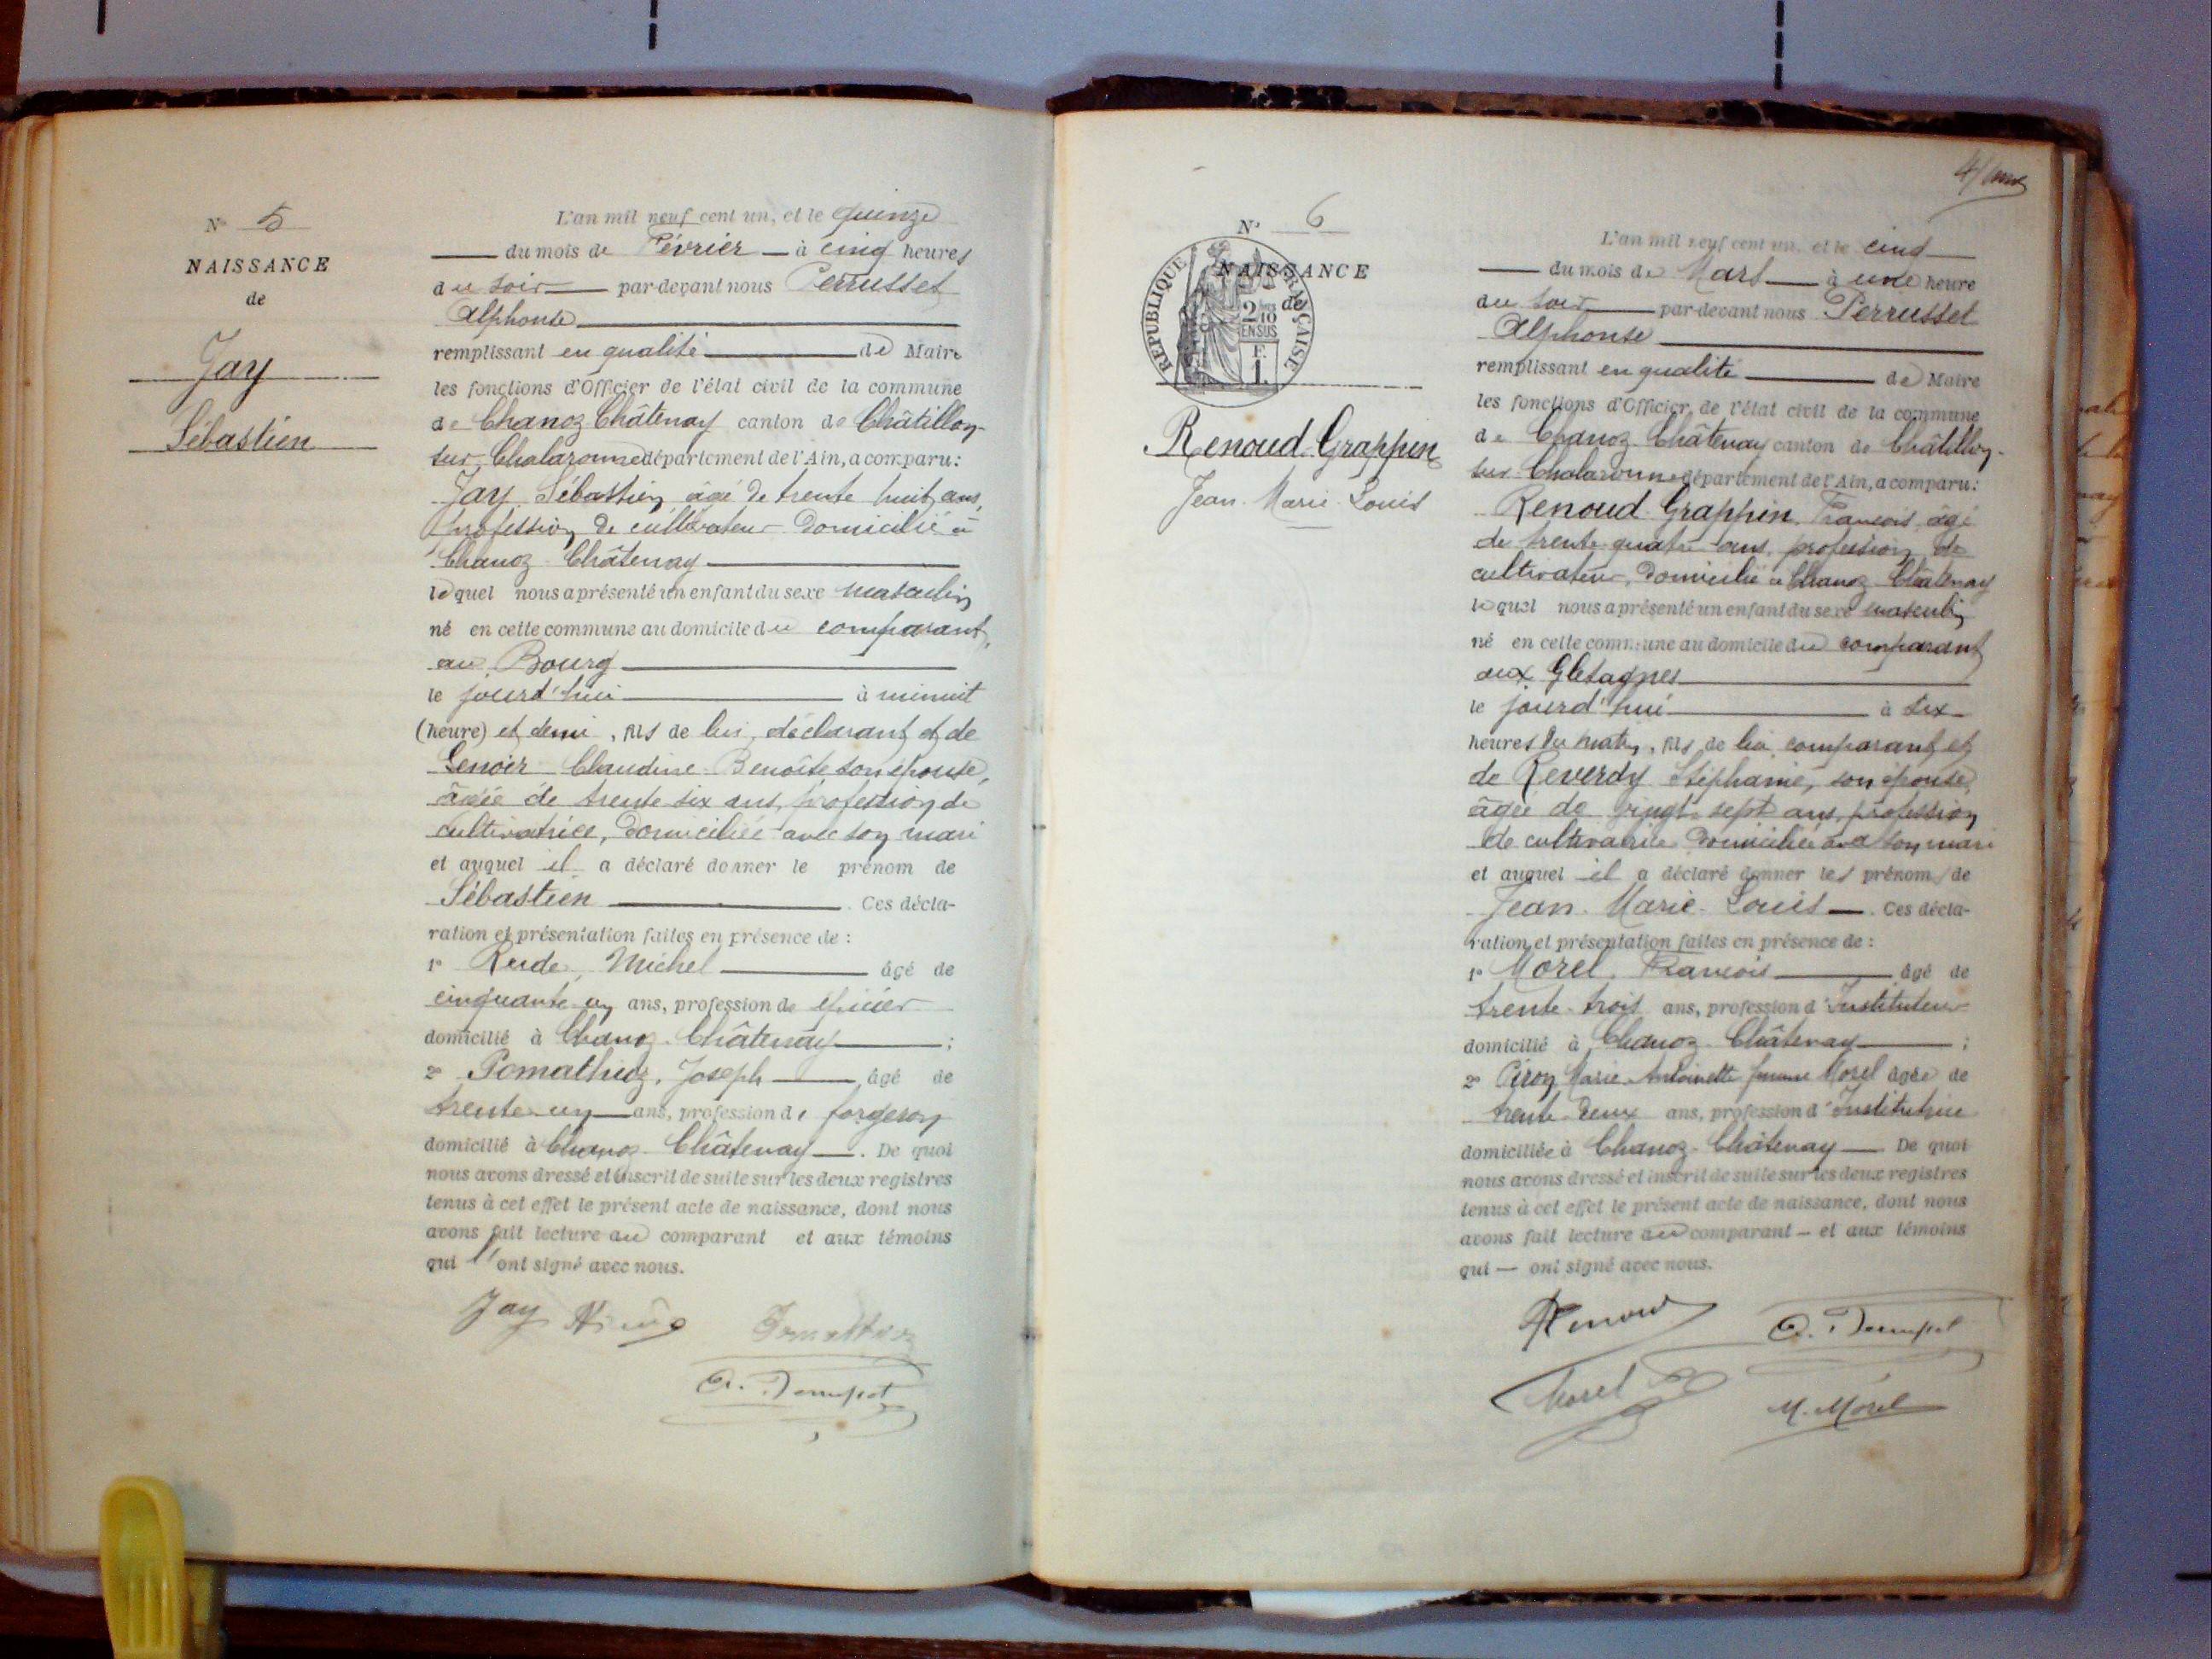 N° 5
NAISSANCE
de
Jay
Sébastien
L'an mil neuf cent un, et le quinze
du mois de Février à cinq heures
du soir par-devant nous Perrusset
Alphonse
remplissant en qualité de Maire
les fonctions d'Officier de l'état civil de la commune
de Chanoz Châtenay canton de Châtillon-
sur Chalaronne département de l'Ain, a comparu:
Jay, Sébastien, âgé de trente huit ans,
profession de cultivateur domicilié à
Chanoz Châtenay
lequel nous a présenté un enfant du sexe masculin
né en cette commune au domicile du comparant,
au Bourg
le jourd'hui à minuit
(heure) et demi, fils de lui, déclarant et de
Claudine Benoîte son épouse,
âgée de trente six ans, profession de
cultivatrice, domiciliée avec son mari
et auquel il a déclaré donner le prénom de
Sébastien. Ces décla-
ration et présentation faites en présence de :
1° Michel âgé de
cinquante un ans, profession de épicier
domicilié à Chanoz Châtenay ;
2° Pomathioz, Joseph âgé de
trente un ans, profession de forgeron
domicilié à Chanoz Châtenay. De quoi
nous avons dressé et inscrit de suite sur les deux registres
tenus à cet effet le présent acte de naissance, dont nous
avons fait lecture au comparant et aux témoins
qui l'ont signé avec nous.
Jay
N° 6
NAISSANCE
de
REPUBLIQUE FRANÇAISE
2/10
EN SUS
F.
1.
Renoud-Grappin
Jean-Marie-Louis
L'an mil neuf cent un, et le cinq
du mois de Mars à une heure
du soir par-devant nous Perrusset
Alphonse
remplissant en qualité de Maire
les fonctions d'Officier de l'état civil de la commune
de Chanoz-Châtenay canton de Châtillon-
sur Chalaronne département de l'Ain, a comparu:
Renoud-Grappin, François, âgé
de trente quatre ans, profession de
cultivateur, domicilié à Chanoz Châtenay
lequel nous a présenté un enfant du sexe masculin
né en cette commune au domicile du comparant
aux Gletagnes
le jourd'hui à six
heures du matin, fils de lui comparant et
de Reverdy Stéphanie, son épouse,
âgée de vingt-sept ans, profession
de cultivatrice domiciliée avec son mari
et auquel il a déclaré donner les prénoms de
Jean-Marie-Louis. Ces décla-
ration et présentation faites en présence de :
1° Morel, François âgé de
trente-trois ans, profession d'Instituteur
domicilié à Chanoz Châtenay ;
2° Marie-Antoinette femme Morel âgée de
trente-deux ans, profession d'Institutrice
domiciliée à Chanoz-Châtenay De quoi
nous avons dressé et inscrit de suite sur les deux registres
tenus à cet effet le présent acte de naissance, dont nous
avons fait lecture au comparant et aux témoins
qui — ont signé avec nous.
Renoud
Morel
M. Morel